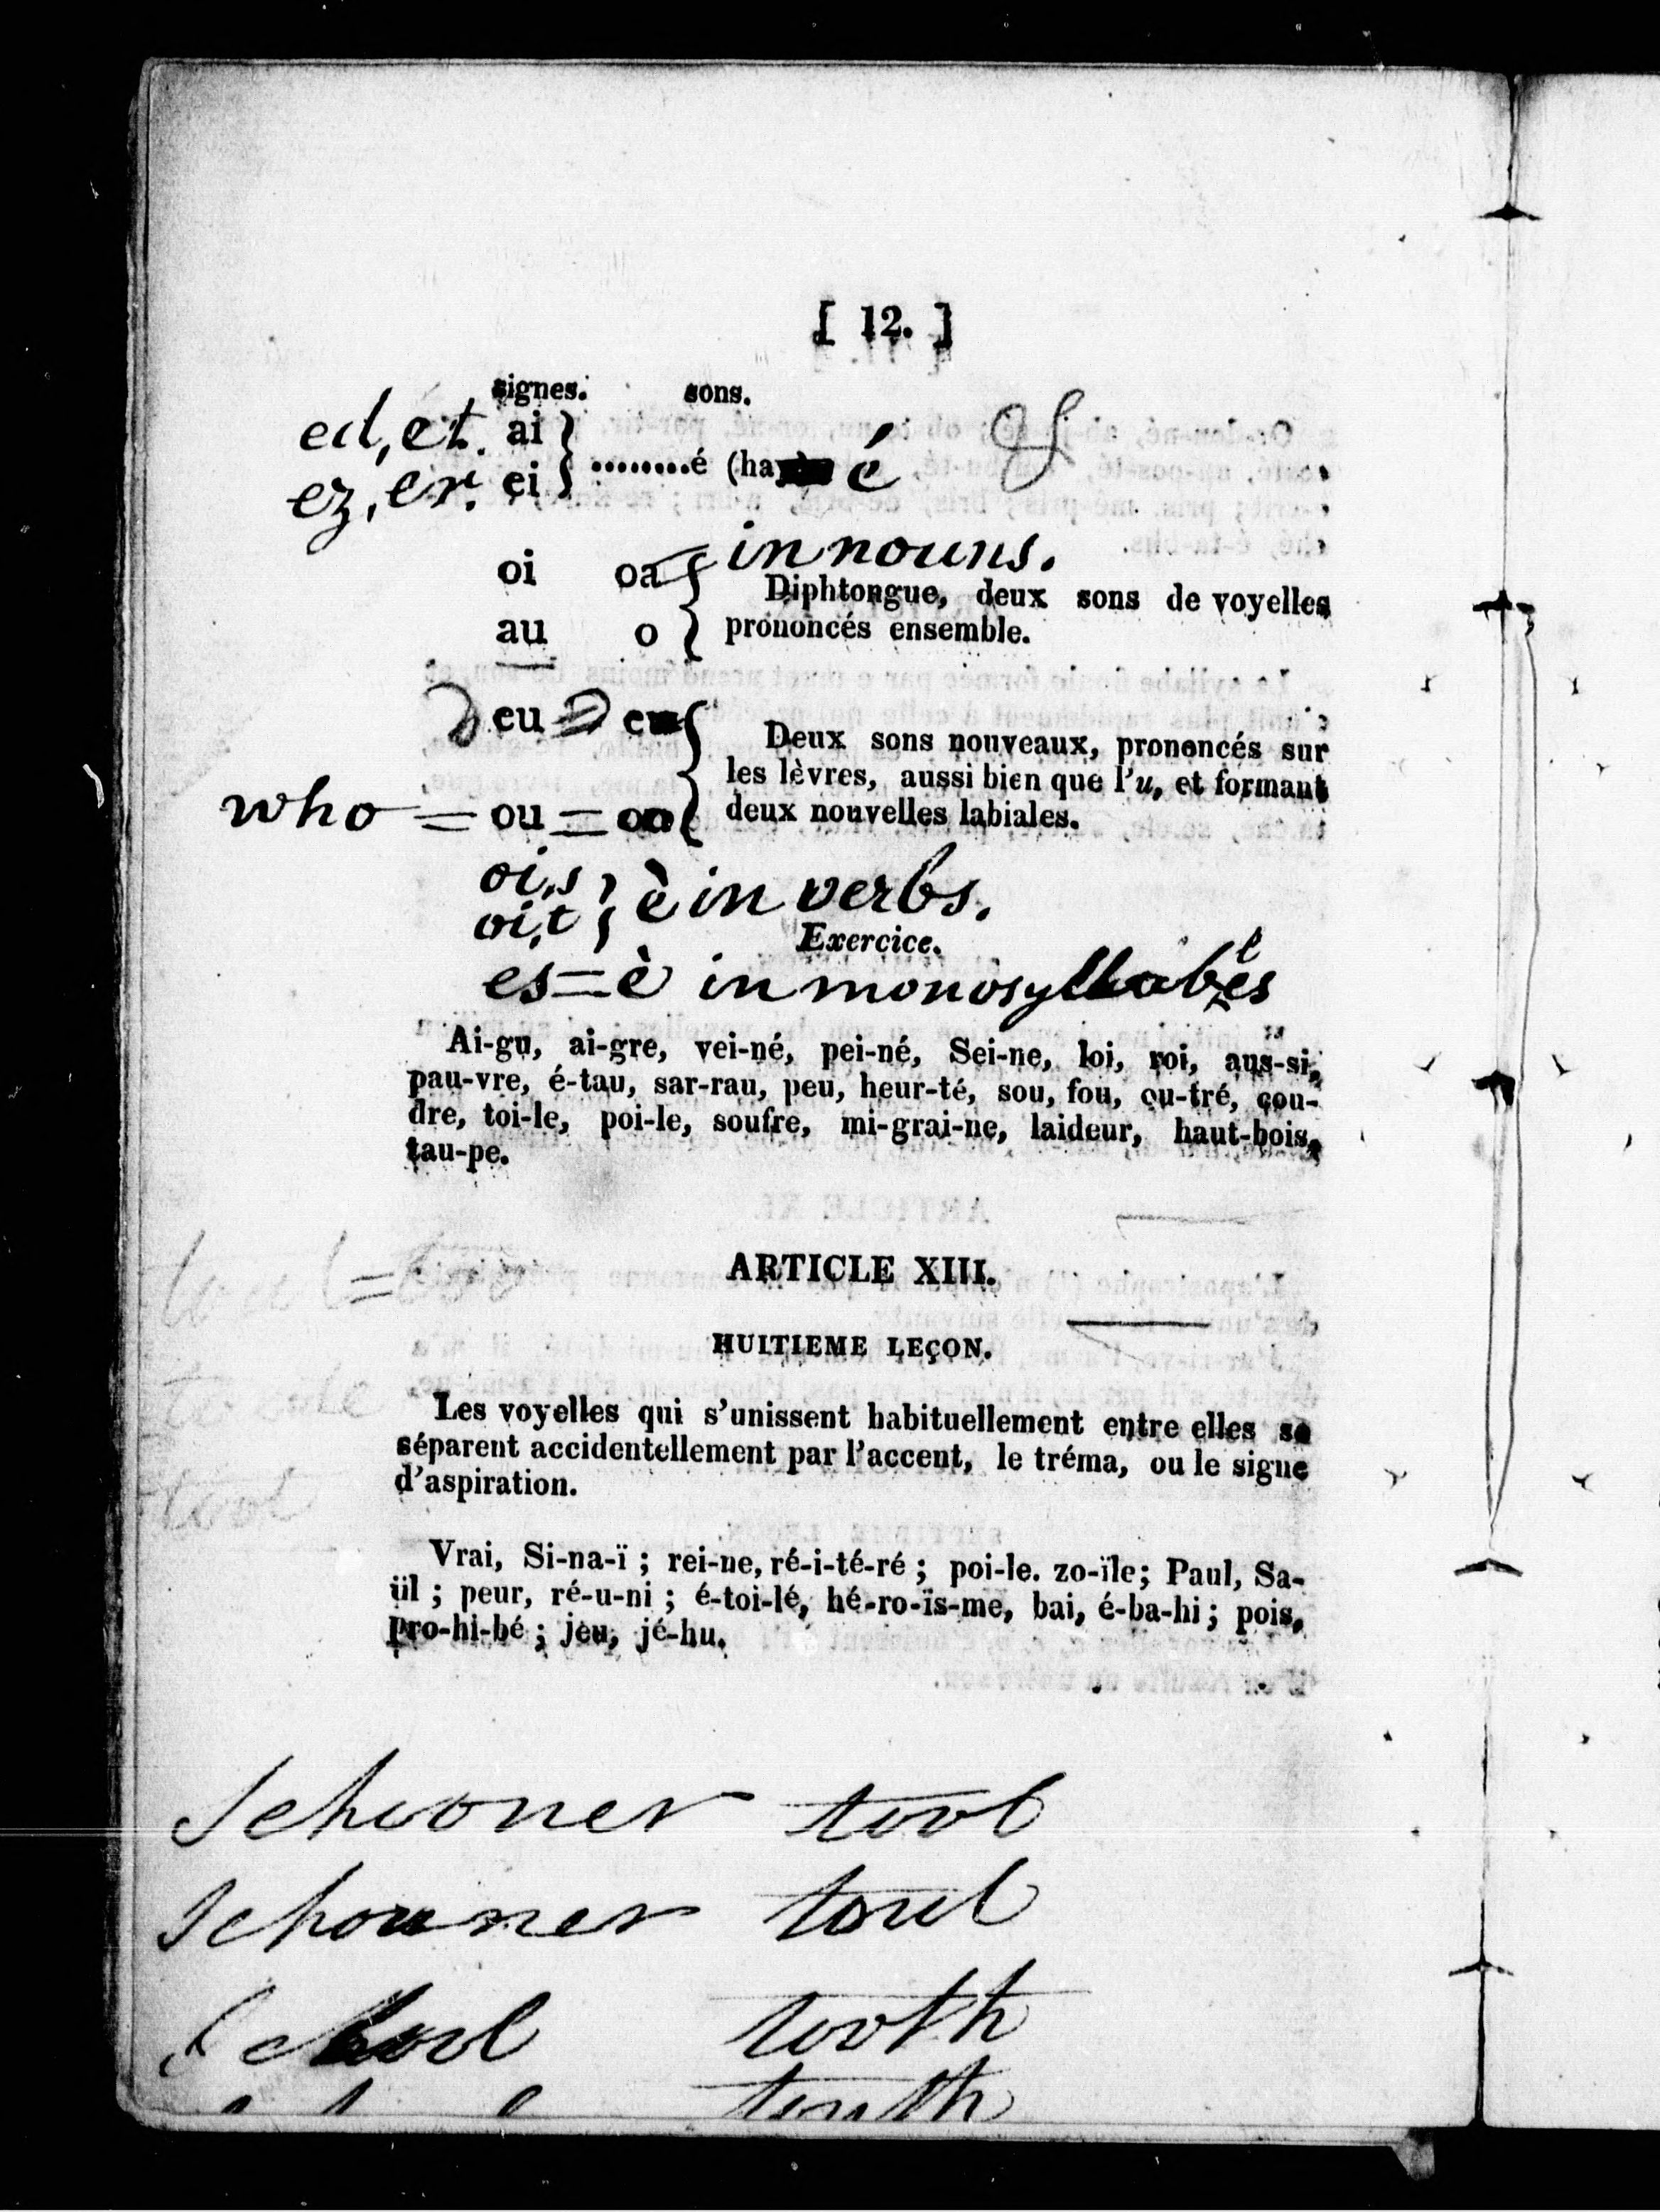 [ 12. ]
signes. sons.
ed, et. ai
ez, er. ei ........é (hay é
in nouns.
oi oa Diphtongue, deux sons de voyelles
au o prononcés ensemble.
eu eu Deux sons nouveaux, prononcés sur
les lèvres, aussi bien que l'u, et formant
who = ou = oo deux nouvelles labiales.
ois
oit è in verbs.
Exercice.
es = è in monosyllables
Ai-gu, ai-gre, vei-né, pei-né, Sei-ne, loi, roi, aus-si,
pau-vre, é-tau, sar-rau, peu, heur-té, sou, fou, ou-tré, cou-
dre, toi-le, poi-le, soufre, mi-grai-ne, laideur, haut-bois,
tau-pe.
ARTICLE XIII.
HUITIEME LEÇON.
Les voyelles qui s'unissent habituellement entre elles se
séparent accidentellement par l'accent, le tréma, ou le signe
d'aspiration.
Vrai, Si-na-ï ; rei-ne, ré-i-té-ré ; poi-le. zo-ïle; Paul, Sa-
ül ; peur, ré-u-ni ; é-toi-lé, hé-ro-ïs-me, bai, é-ba-hi ; pois,
pro-hi-bé ; jeu, jé-hu.
Schooner tool
Schouner toul
School tooth
touth